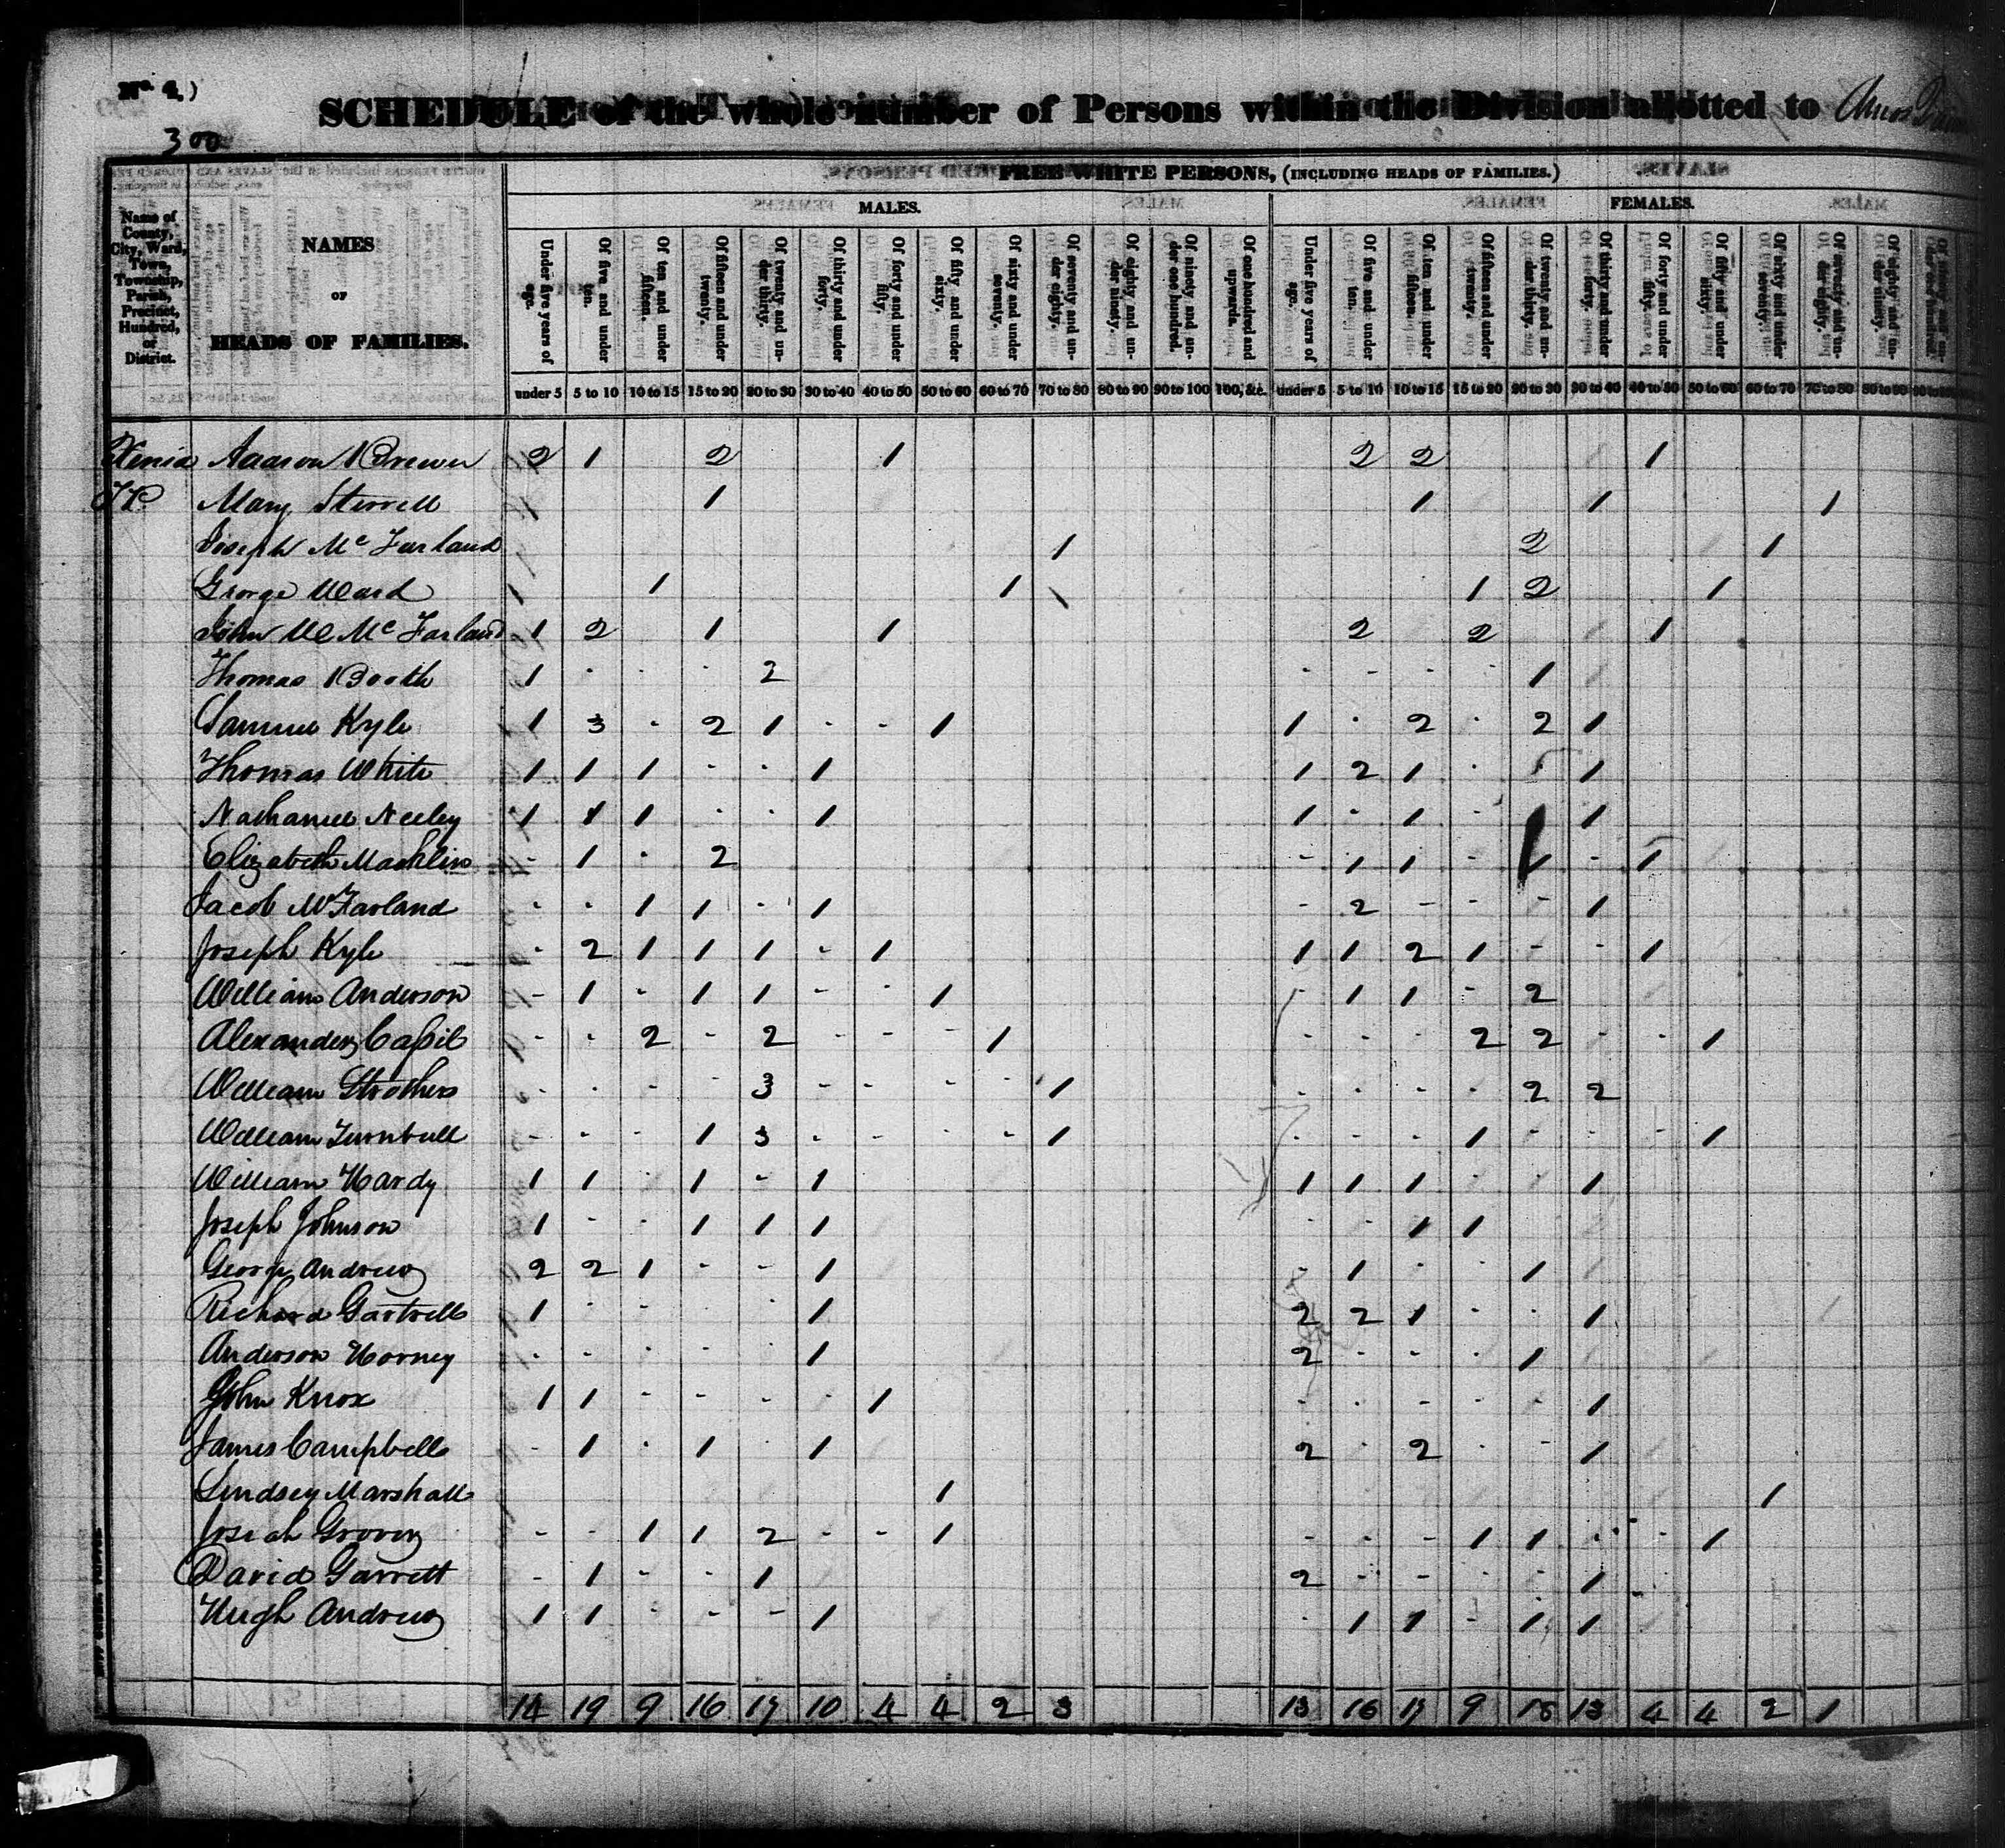 No. 4.)
SCHEDULE of the whole number of Persons within the Division allotted to Amos
300
FREE WHITE PERSONS, (INCLUDING HEADS OF FAMILIES.)
MALES. FEMALES.
Name of County, City, Ward, Town, Township, Parish, Precinct, Hundred, or District.
NAMES OF HEADS OF FAMILIES.
Under five years of age. Of five and under ten. Of ten and under fifteen. Of fifteen and under twenty. Of twenty and under thirty. Of thirty and under forty. Of forty and under fifty. Of fifty and under sixty. Of sixty and under seventy. Of seventy and under eighty. Of eighty and under ninety. Of ninety and under one hundred. Of one hundred and upwards. Under five years of age. Of five and under ten. Of ten and under fifteen. Of fifteen and under twenty. Of twenty and under thirty. Of thirty and under forty. Of forty and under fifty. Of fifty and under sixty. Of sixty and under seventy. Of seventy and under eighty. Of eighty and under ninety.
under 5 5 to 10 10 to 15 15 to 20 20 to 30 30 to 40 40 to 50 50 to 60 60 to 70 70 to 80 80 to 90 90 to 100 100, &c. under 5 5 to 10 10 to 15 15 to 20 20 to 30 30 to 40 40 to 50 50 to 60 60 to 70 70 to 80 80 to 90
Xenia Aaaron Brewer 2 1 2 1 2 2 1
TP Mary Sterrell 1 1 1 1
Joseph Mc Farland 1 2 1
George Ward 1 1 1 2 1
John W Mc Farland 1 2 1 1 2 2 1
Thomas Booth 1 - - - 2 - - - - 1
Samuel Kyle 1 3 - 2 1 - - 1 1 - 2 - 2 1
Thomas White 1 1 1 - - 1 1 2 1 - 1
Nathaniel Neeley 1 1 1 - - 1 1 - 1 - 1
Elizabeth Macklin - 1 - 2 - 1 1 - 1 - 1
Jacob McFarland - - 1 1 - 1 - 2 - - - 1
Joseph Kyle - 2 1 1 1 - 1 1 1 2 1 - - 1
William Anderson - 1 - 1 1 - - 1 - 1 1 - 2
Alexander - - 2 - 2 - - - 1 - - - 2 2 - - 1
William Strothers - - - - 3 - - - - 1 - - - - 2 2
William Turnbull - - - 1 3 - - - - 1 - - - 1 - - - 1
William Hardy 1 1 - 1 - 1 1 1 1 - - 1
Joseph Johnson 1 - - 1 1 1 - - 1 1
George Andrew 2 2 1 - - 1 - 1 - - 1
Richard Gartrell 1 - - - - 1 2 2 1 - - 1
Anderson Horney - - - - - 1 2 - - - 1
John Knox 1 1 - - - - 1 - - - - - 1
James Campbell - 1 - 1 - 1 2 - 2 - - 1
Lindsey Marshall 1 1
Josiah Grover - - 1 1 2 - - 1 - - - 1 1 - - 1
David Garrett - 1 - - 1 2 - - - - 1
Hugh Andrew 1 1 - - - 1 - 1 1 - 1 1
14 19 9 16 17 10 4 4 2 3 13 16 17 9 18 13 4 4 2 1